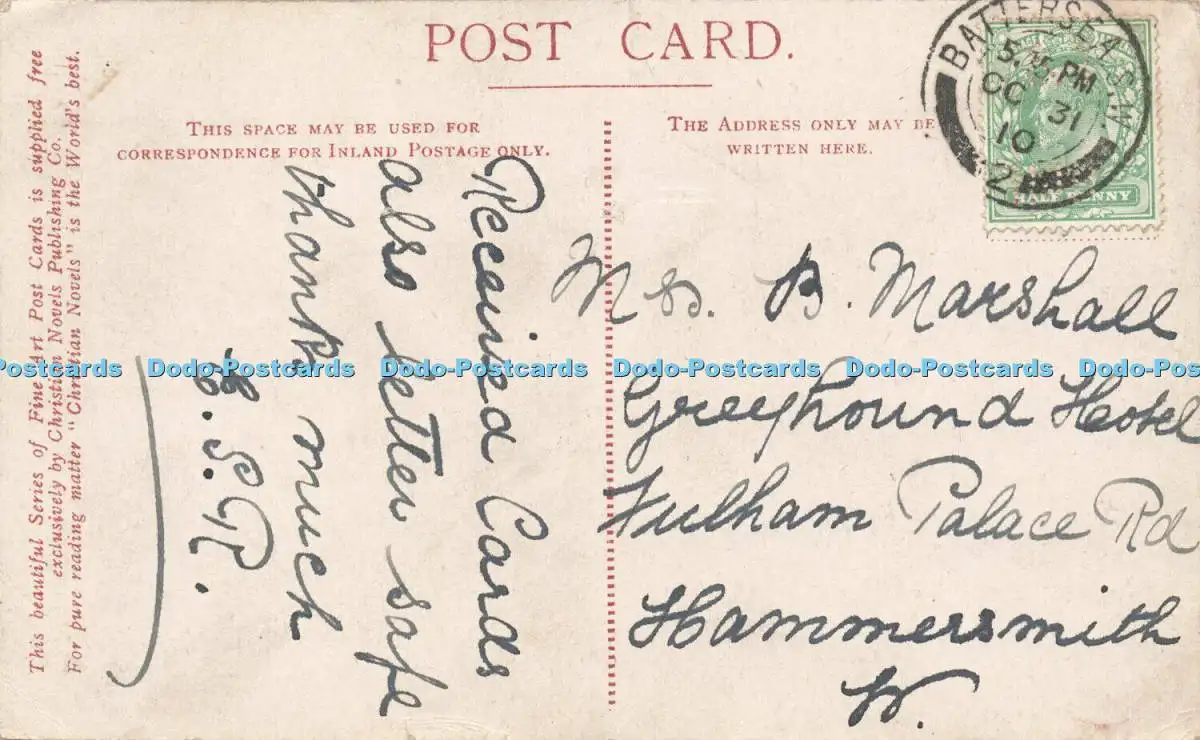 POST CARD.
THIS SPACE MAY BE USED FOR
CORRESPONDENCE FOR INLAND POSTAGE ONLY.
THE ADDRESS ONLY MAY BE
WRITTEN HERE.
BATTERSEA S.W.
5.15 PM
OC 31
10
2
HALF PENNY
This beautiful Series of Fine Art Post Cards is supplied free
exclusively by Christian Novels Publishing Co.
For pure reading matter "Christian Novels" is the World's best.
Received Cards
also letter safe
thanks much
E. S. P.
Mrs. B. Marshall
Greyhound Hotel
Fulham Palace Rd
Hammersmith
W.
Dodo-Postcards Dodo-Postcards Dodo-Postcards Dodo-Postcards Dodo-Postcards Dodo-Postcards